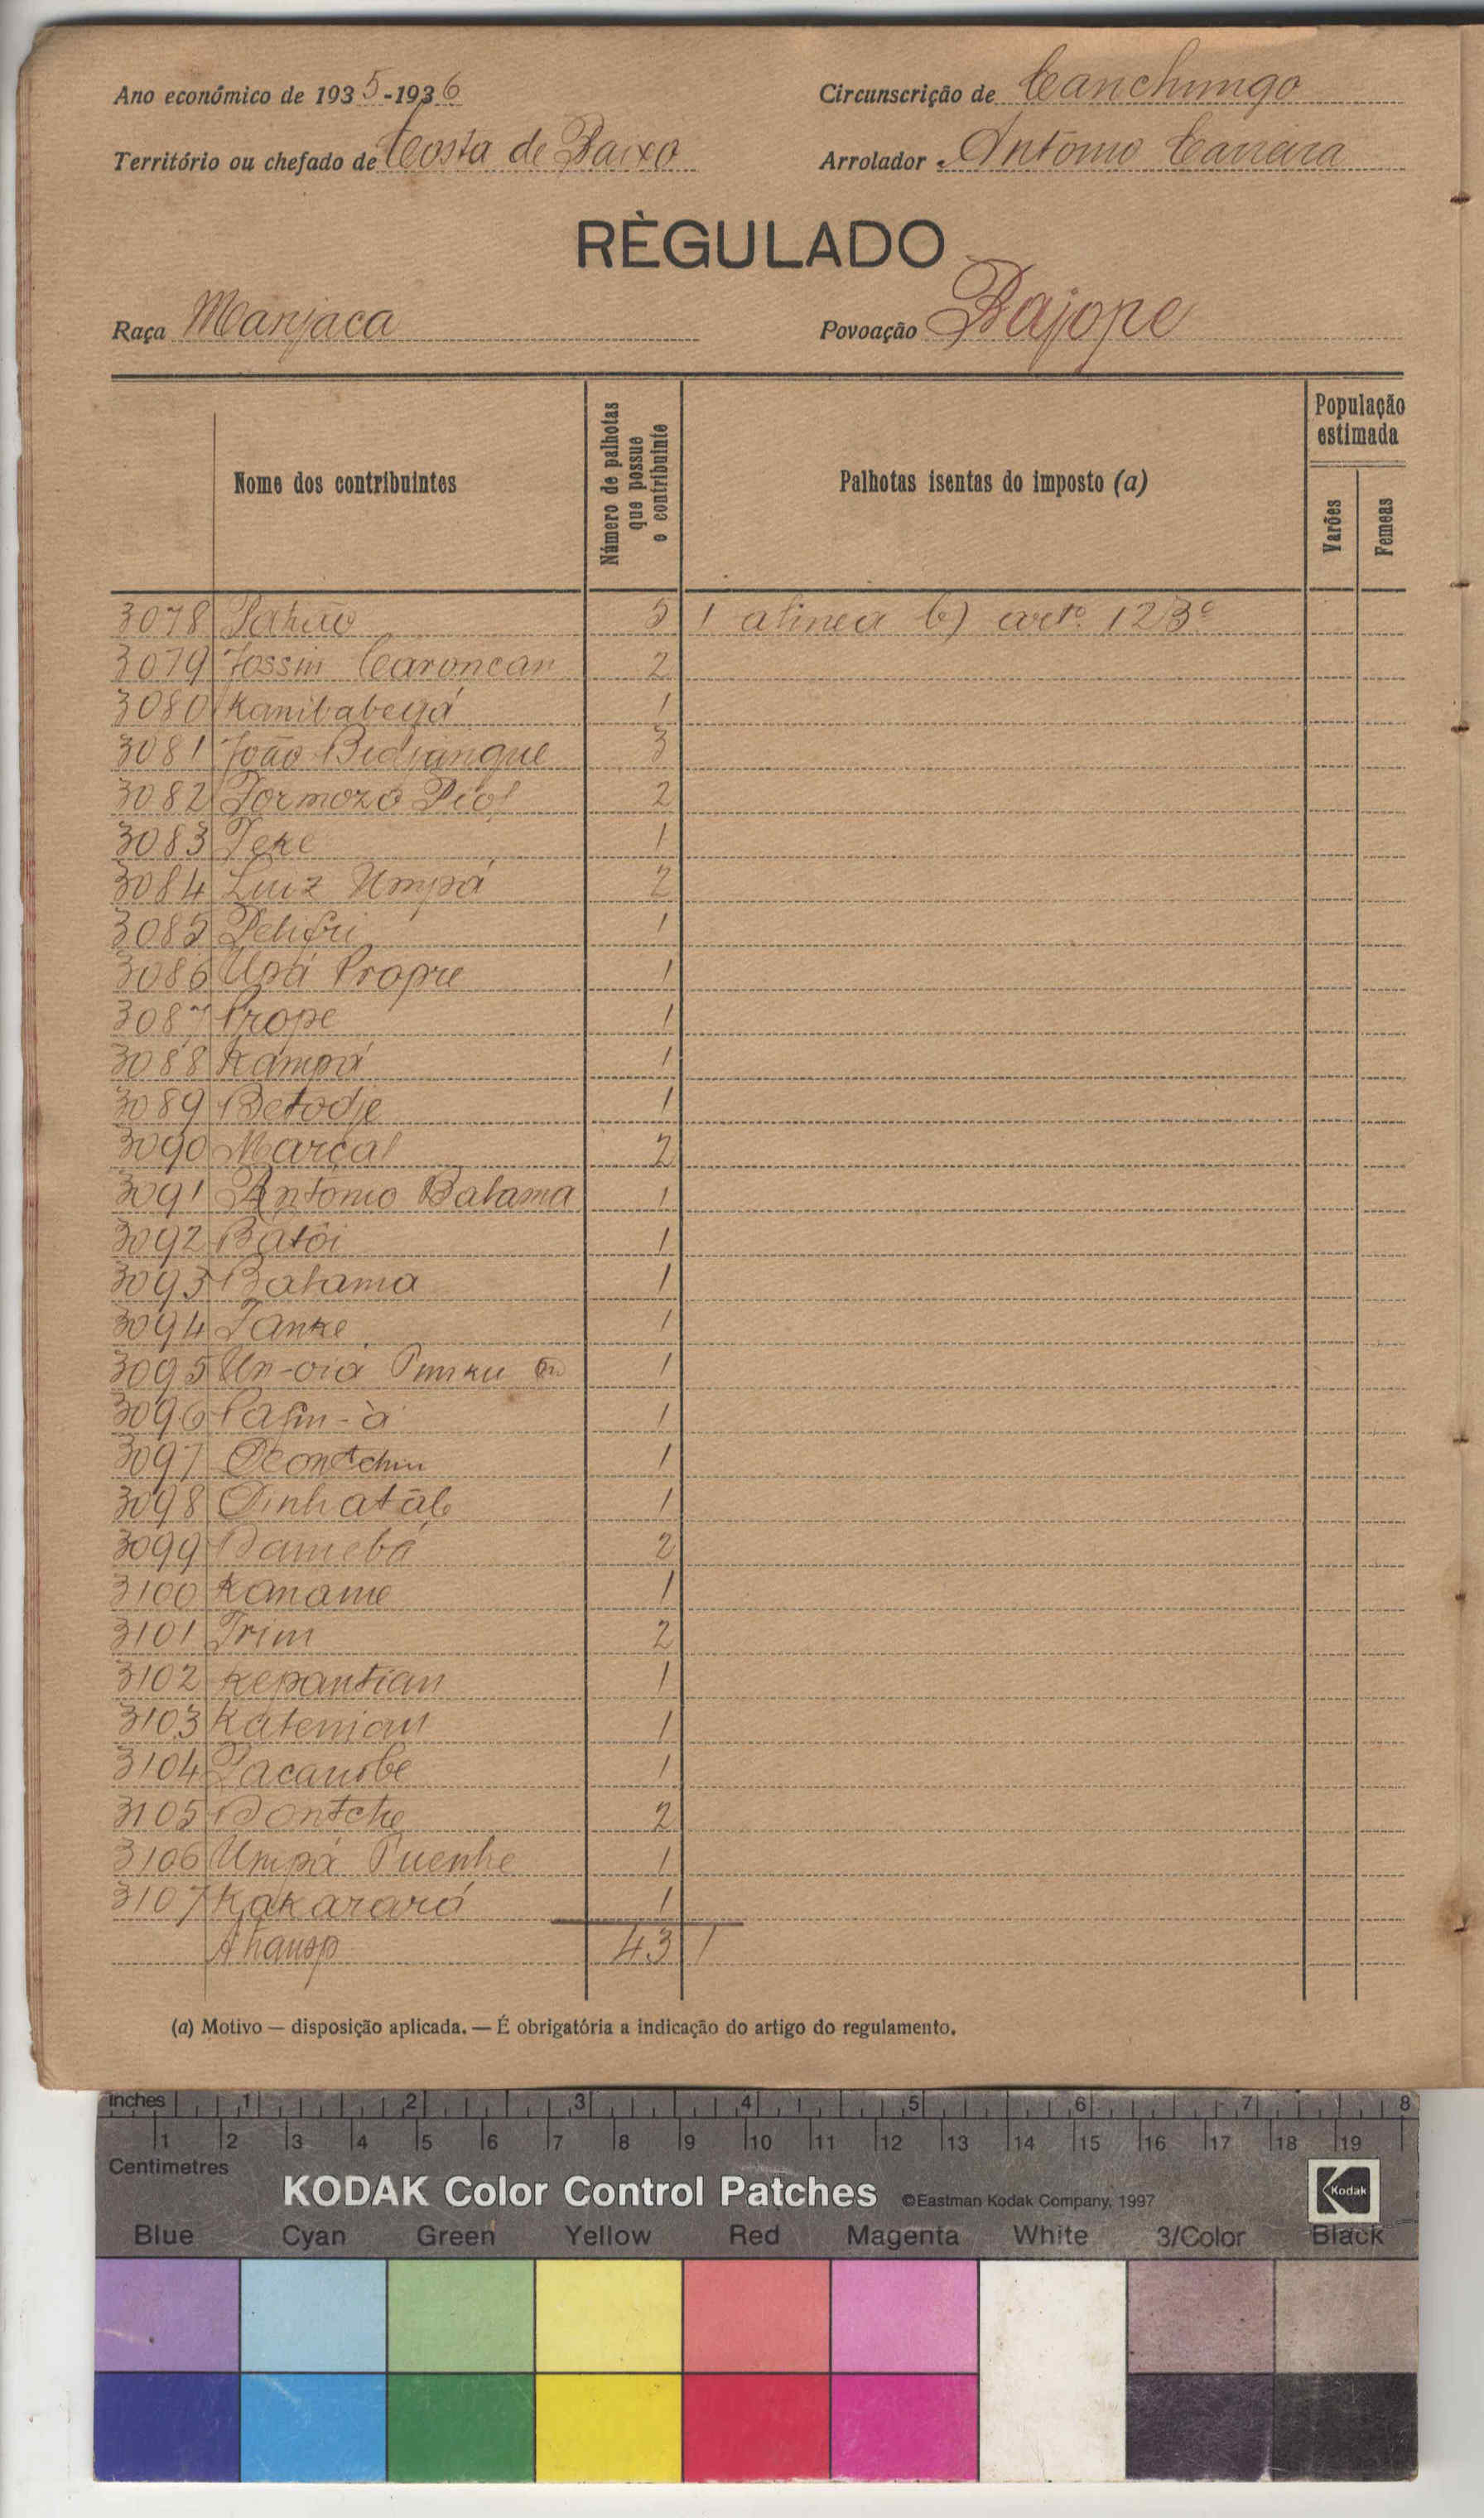 Ano económico de 1935-1936
Circunscrição de Canchungo
Território ou chefado de Costa de Baixo
Arrolador António Carreira
RÈGULADO
Raça Manjaca
Povoação Bajope
Nome dos contribuintes
Número de palhotas que possue o contribuinte
Palhotas isentas do imposto (a)
População estimada
Varões
Femeas
3078 5 1 alinea b) artº. 123º
3079 Jossin Caroncan 2
3080 Kanibabegá 1
3081 João Bidjangue 3
3082 2
3083 Teke 1
3084 Luiz Umpá 2
3085 1
3086 Upá Propre 1
3087 Prope 1
3088 Kampá 1
3089 Betodje 1
3090 Marçal 2
3091 António Batama 1
3092 Batôi 1
3093 Batama 1
3094 Janke 1
3095 Un-oiá 1
3096 Pafin-à 1
3097 1
3098 1
3099 2
3100 Kaname 1
3101 Trim 2
3102 Kepantian 1
3103 Katenian 1
3104 1
3105 Dontche 2
3106 Umpá Puenhe 1
3107 Kakarará 1
43 1
(a) Motivo — disposição aplicada. — É obrigatória a indicação do artigo do regulamento.
Inches 1 2 3 4 5 6 7 8
1 2 3 4 5 6 7 8 9 10 11 12 13 14 15 16 17 18 19
Centimetres
KODAK Color Control Patches ©Eastman Kodak Company, 1997 Kodak
Blue Cyan Green Yellow Red Magenta White 3/Color Black